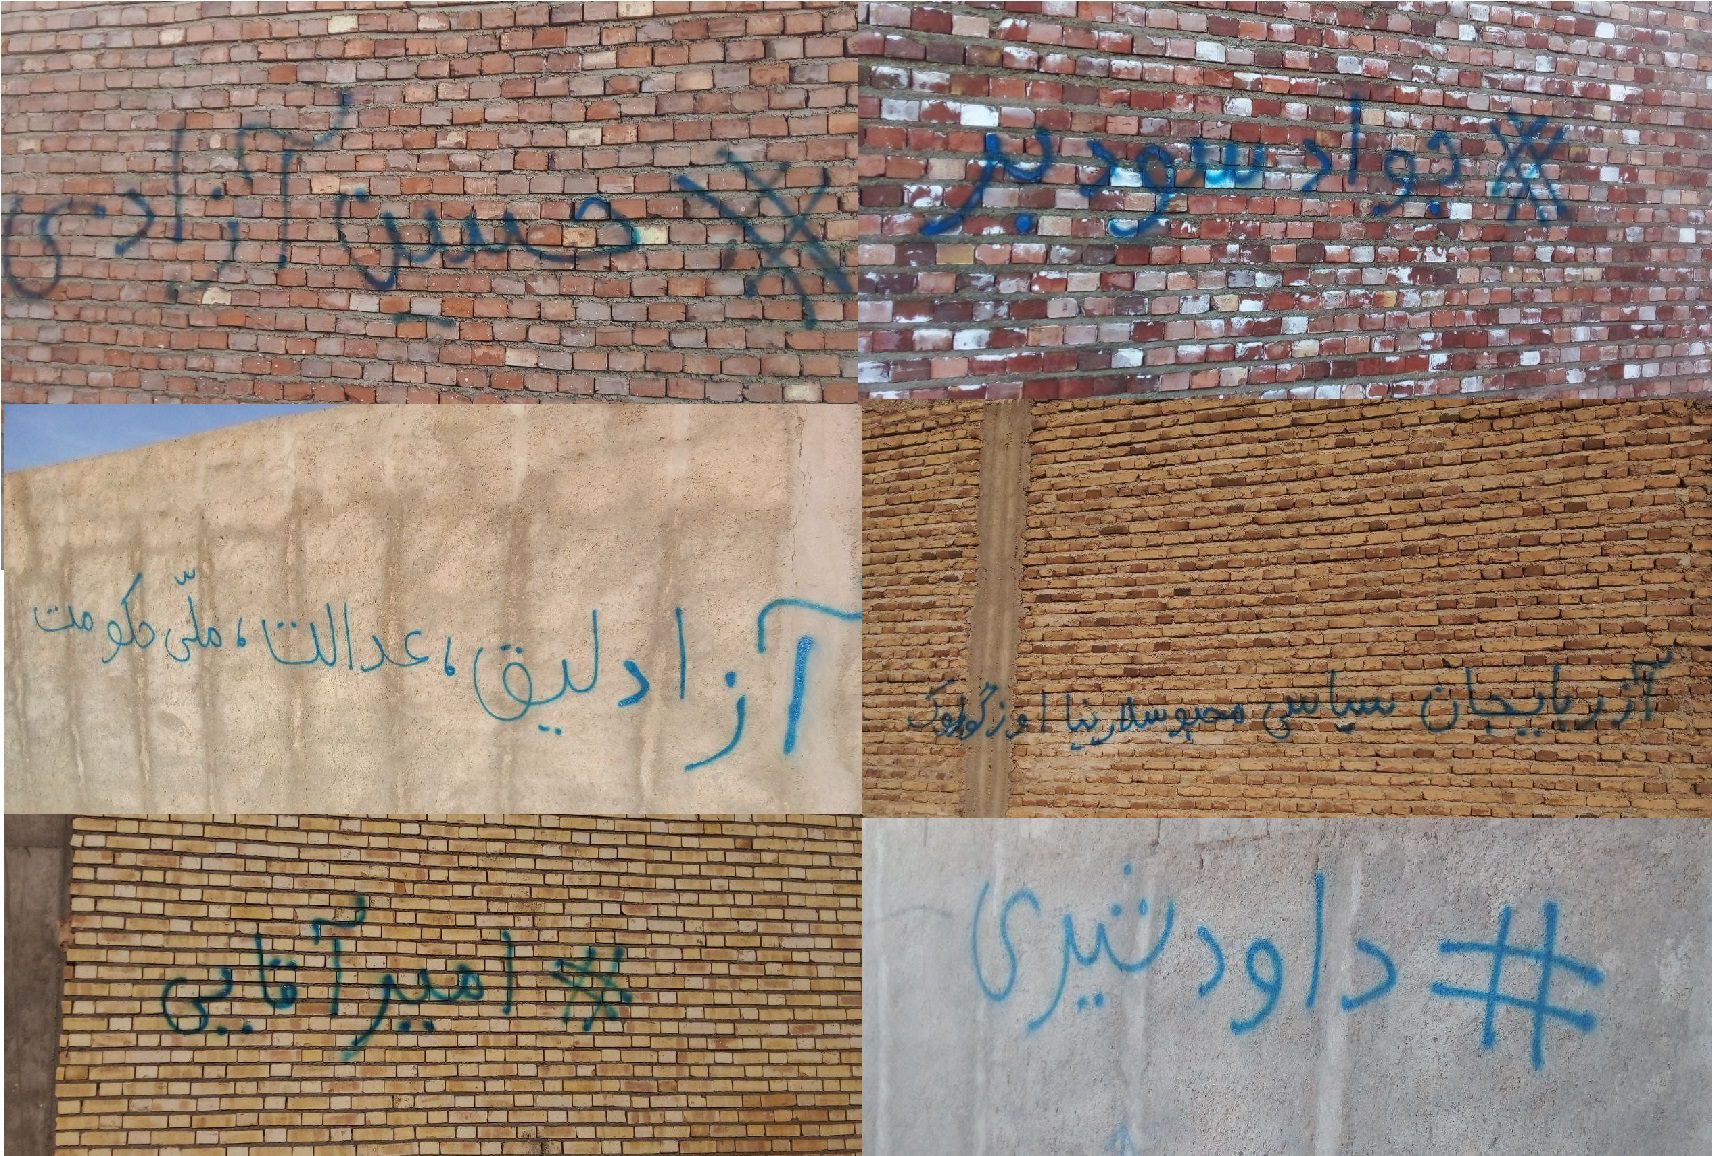 #جواد سودبر
#حسین آزادی
آزربایجان سیاسی محبوسلارینا اوزگورلوک
آزادلیق، عدالت، ملّی حکومت
#داود شیری
#امیر آقایی